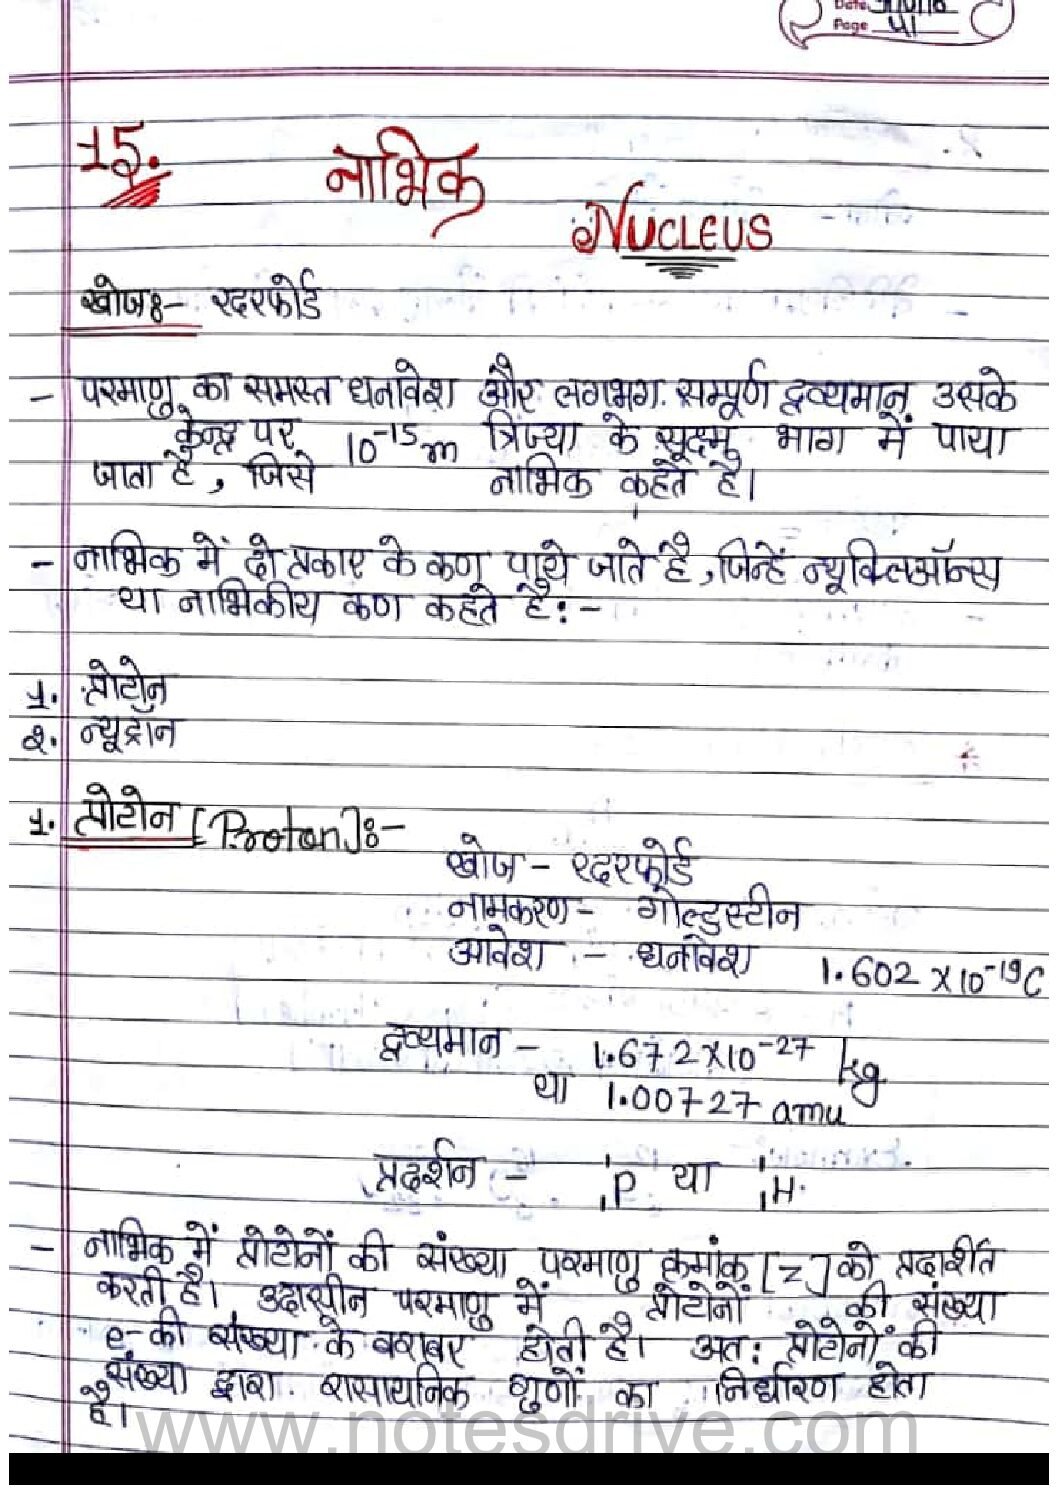 Date
Page 41
15.
नाभिक
NUCLEUS
खोजः- रदरफोर्ड
- परमाणु का समस्त धनावेश और लगभग सम्पूर्ण द्रव्यमान उसके
केन्द्र पर 10⁻¹⁵m त्रिज्या के सूक्ष्म भाग में पाया
जाता है, जिसे नाभिक कहते है।
- नाभिक में दो प्रकार के कण पाये जाते है, जिन्हें न्यूक्लिऑन्स
या नाभिकीय कण कहते है:-
1. प्रोटोन
2. न्यूट्रॉन
1. प्रोटोन [Proton]ः-
खोज - रदरफोर्ड
नामकरण - गोल्डस्टीन
आवेश - धनावेश 1.602 x 10⁻¹⁹C
द्रव्यमान - 1.672x10⁻²⁷ kg
या 1.00727 amu
प्रदर्शन - ₁¹P या ₁¹H.
- नाभिक में प्रोटोनों की संख्या परमाणु क्रमांक [Z] को प्रदर्शित
करती है। उदासीन परमाणु में प्रोटोनों की संख्या
e- की संख्या के बराबर होती है। अत: प्रोटोनों की
संख्या द्वारा रासायनिक गुणों का निर्धारण होता
है।
www.notesdrive.com